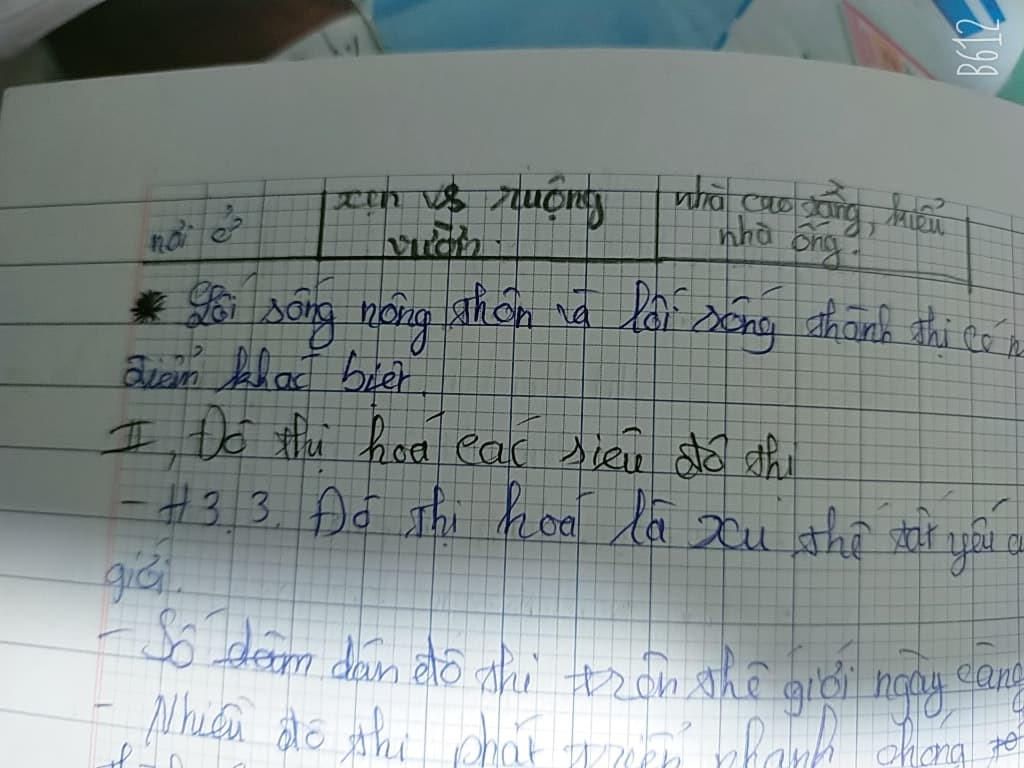 B612
xịn vs ruộng
vườn.
nhà cao tầng, kiểu
nhà ống.
nơi ở
* Lối sống nông thôn và lối sống thành thị có
điểm khác biệt.
II, Đô thị hoá các siêu đô thị
- H3.3. Đô thị hoá là xu thế tất yếu
giới.
- Số dân đô thị trên thế giới ngày càng
- Nhiều đô thị phát triển nhanh chóng